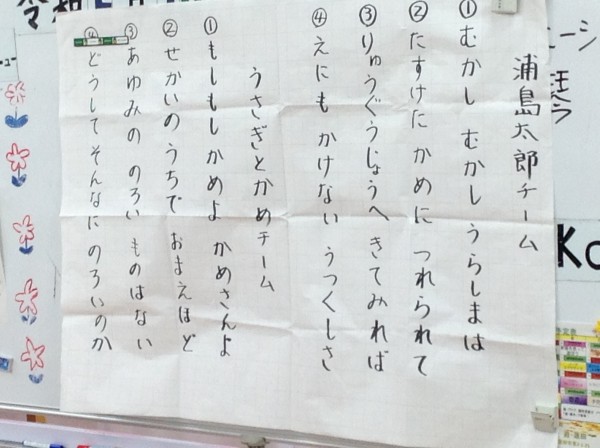 浦島太郎チーム
①むかし むかし うらしまは
②たすけた かめに つれられて
③りゅうぐうじょうへ きてみれば
④えにも かけない うつくしさ
うさぎとかめチーム
①もしもし かめよ かめさんよ
②せかいのうちで おまえほど
③あゆみの のろい ものはない
④どうして そんなに のろいのか
Ko